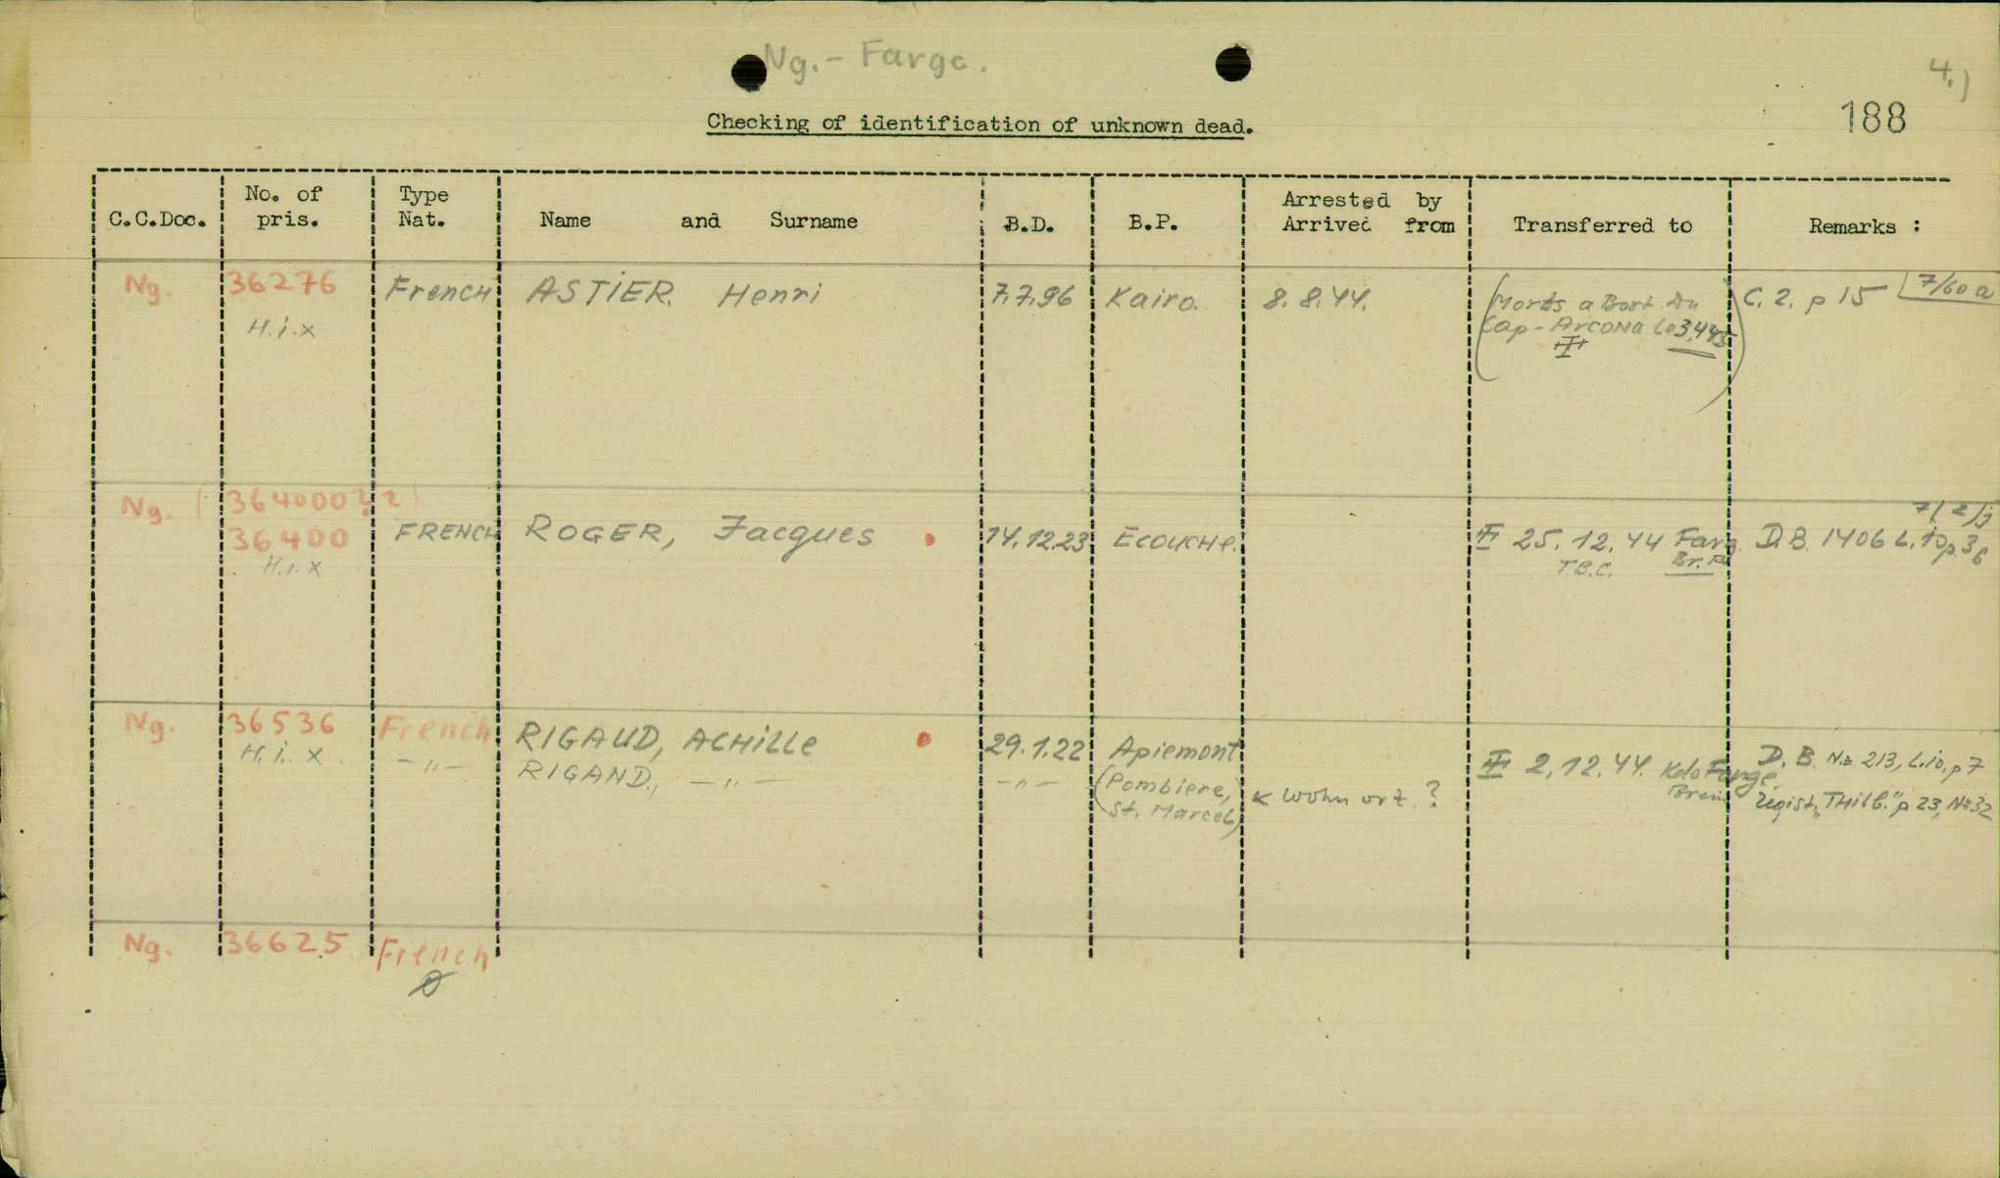 Ng. - Farge.
4.)
188
Checking of identification of unknown dead.
C.C.Doc.
No. of
pris.
Type
Nat.
Name and Surname
B.D.
B.P.
Arrested by
Arrived from
Transferred to
Remarks :
Ng.
36276
H.i.x
French
ASTIER. Henri
7.7.96
Kairo.
8.8.44.
(Morts a Bort Du
Cap - ARCONA Le 3.4.45)
C. 2. p 15
7/60 a
Ng.
(364000??)
36400
H.i.x
FRENCH
ROGER, Jacques
14.12.23
Ecouche.
25.12.44 Farg.
T.B.C.
7/2/j
D.B. 1406 L.10 p.36
Ng.
36536
H.i. x
French
- " -
RIGAUD, ACHille
RIGAND, - " -
29.1.22
- " -
Apiemont
(Pombiere,
St. Marcel)
< Wohn ort ?
2.12.44. Kdo Farge.
D. B. No 213, L.10, p 7
regist. "THilb." p 23, No 32
Ng.
36625
French